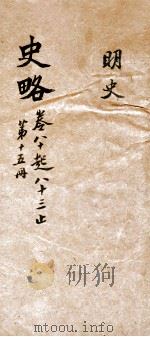 明史
史略
卷八十起八十三止
第十五冊
研狗
mtoou.info